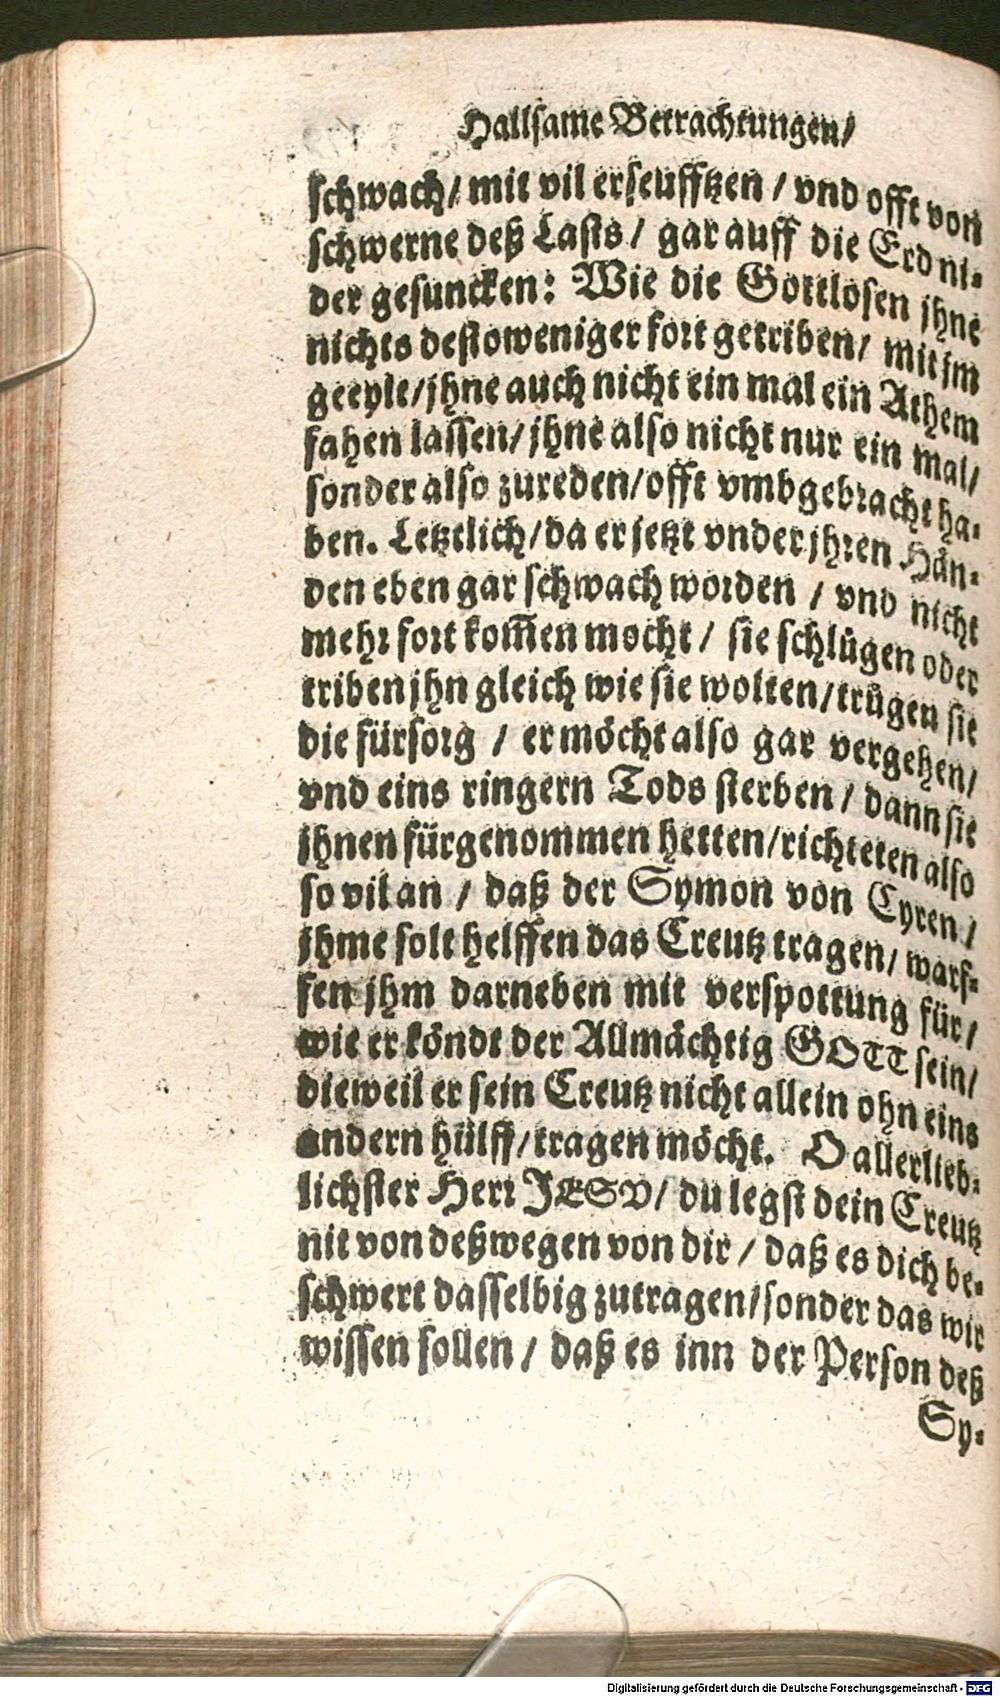 Hailsame Betrachtungen/
schwach/ mit vil erseufftzen / vnd offt von
schwerne deß Lasts / gar auff die Erd ni-
der gesuncken: Wie die Gottlosen jhne
nichts destoweniger fort getriben/ mit jm
geeylt/jhne auch nicht ein mal ein Athem
fahen lassen/ jhne also nicht nur ein mal/
sonder also zureden/offt vmbgebracht ha-
ben. Letztlich/da er jetzt vnder jhren Hån-
den eben gar schwach worden / vnd nicht
mehr fort kom̃en mocht / sie schlůgen oder
triben jhn gleich wie sie wolten/trůgen sie
die fürsorg / er möcht also gar vergehen/
vnd eins ringern Tods sterben / dann sie
jhnen fürgenommen hetten/richteten also
so vil an / daß der Symon von Cyren /
jhme solt helffen das Creutz tragen/ warf-
fen jhm darneben mit verspottung für /
wie er köndt der Allmächtig GOTT sein/
dieweil er sein Creutz nicht allein ohn eins
andern hülff/tragen möcht. O allerlieb-
lichster Herr JESV/ du legst dein Creutz
nit von deßwegen von dir / daß es dich be-
schwert dasselbig zutragen/sonder das wir
wissen sollen / daß es inn der Person deß
Sy-
Digitalisierung gefördert durch die Deutsche Forschungsgemeinschaft - DFG